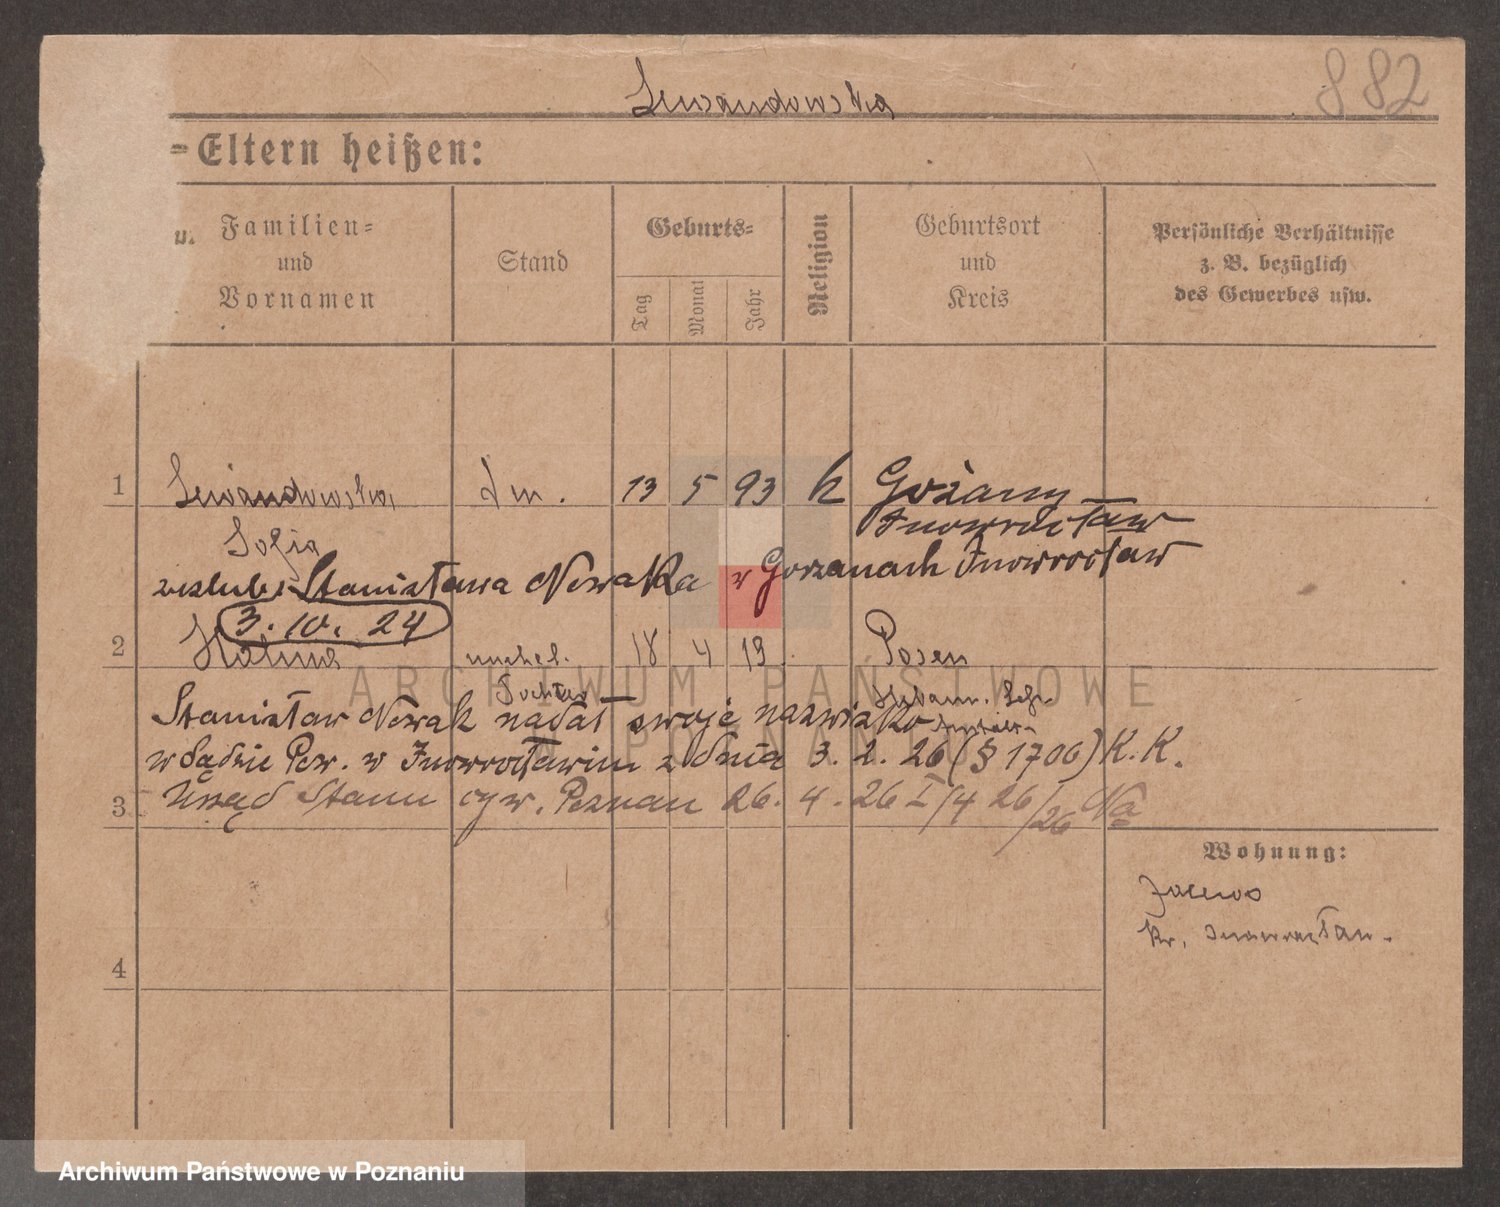 Lewandowska
882
=Eltern heißen:
u. Familien=
und
Vornamen
Stand
Geburts=
Tag
Monat
Jahr
Religion
Geburtsort
und
Kreis
Persönliche Verhältnisse
z. B. bezüglich
des Gewerbes usw.
1 Lewandowska, 13 5 93 k
Inowrocław
Sofia
Stanisława Nowaka w Gorzanach Inowrocław
3. 10. 24
2 18 4 19. Posen
unehel.
Tochter
Stanisław Nowak nadał swoje nazwisko
w Sądzie Pow. w Inowrocławiu z dnia 3. 2. 26 (§ 1706) K. K.
3 Urząd Stanu cyw. Poznań 26. 4. 26
Wohnung:
kr. Inowrocław.
4
ARCHIWUM PAŃSTWOWE
W POZNANIU
Archiwum Państwowe w Poznaniu